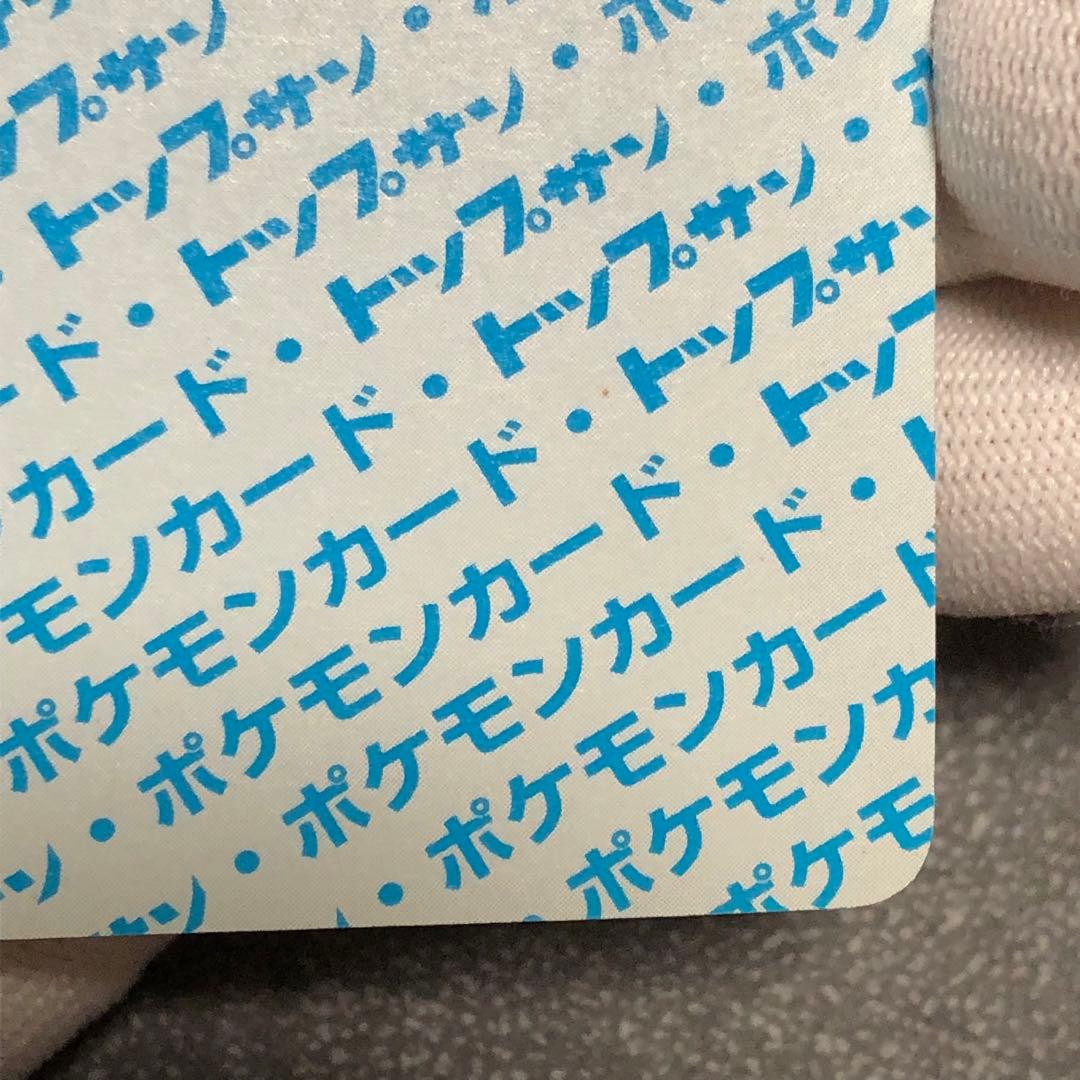 ップサン
トップサン・
ード・トップサン・ポ
カード・トップサン・ポケ
モンカード・トップサン・ポ
ポケモンカード・トップサン
ン・ポケモンカード・トップ
ン・ポケモンカード・ト
・ポケモンカード
ポケモンカ
ポケモ